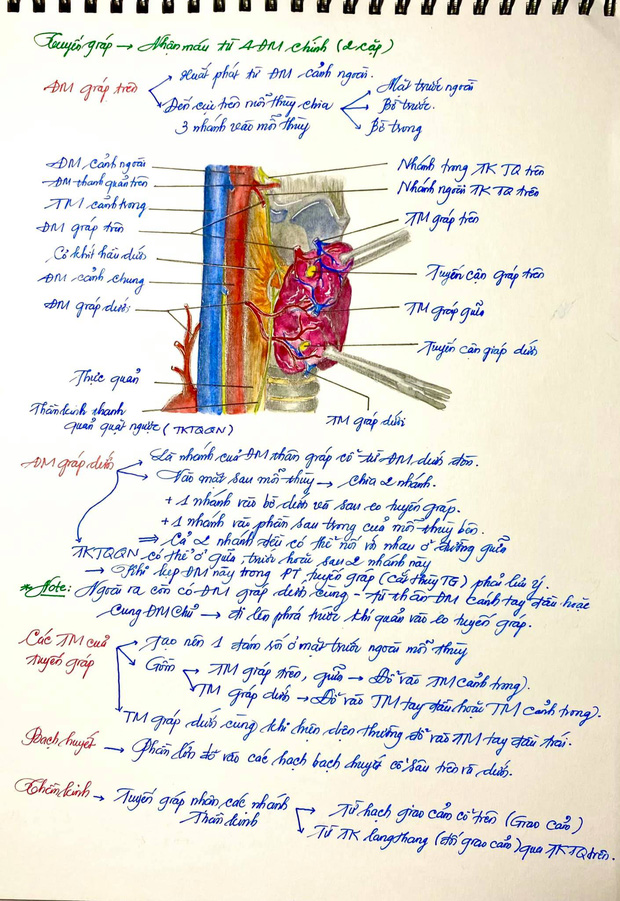 Tuyến giáp → Nhận máu từ 4 ĐM chính (2 cặp)
ĐM giáp trên
Xuất phát từ ĐM cảnh ngoài.
Đến cực trên mỗi thùy chia
3 nhánh vào mỗi thùy
Mặt trước ngoài
Bờ trước.
Bờ trong
ĐM cảnh ngoài
ĐM thanh quản trên
TM cảnh trong
ĐM giáp trên
Cơ khít hầu dưới
ĐM cảnh chung
ĐM giáp dưới
Thực quản
Thần kinh thanh
quản quặt ngược (TKTQQN)
Nhánh trong TK TQ trên
Nhánh ngoài TK TQ trên
TM giáp trên
Tuyến cận giáp trên
TM giáp giữa
Tuyến cận giáp dưới
TM giáp dưới
ĐM giáp dưới
Là nhánh của ĐM thân giáp cổ từ ĐM dưới đòn.
Vào mặt sau mỗi thùy → chia 2 nhánh.
+ 1 nhánh vào bờ dưới và sau eo tuyến giáp.
+ 1 nhánh vào phần sau trong của mỗi thùy bên.
⇒ Cả 2 nhánh đều có thể nối với nhau ở đường giữa
TKTQQN có thể ở giữa, trước hoặc sau 2 nhánh này
→ Khi kẹp ĐM này trong PT tuyến giáp (cắt thùy TG) phải lưu ý.
* Note: Ngoài ra còn có ĐM giáp dưới cùng - từ thân ĐM cánh tay đầu hoặc
cung ĐM chủ → đi lên phía trước khí quản vào eo tuyến giáp.
Các TM của
tuyến giáp
Tạo nên 1 đám rối ở mặt trước ngoài mỗi thùy
Gồm
TM giáp trên, giữa → Đổ vào TM cảnh trong).
TM giáp dưới → Đổ vào TM tay đầu hoặc TM cảnh trong).
TM giáp dưới cùng khi hiện diện thường đổ vào TM tay đầu trái.
Bạch huyết → Phần lớn đổ vào các hạch bạch huyết cổ sâu trên và dưới.
Thần kinh → Tuyến giáp nhận các nhánh
Thần kinh
Từ hạch giao cảm cổ trên (Giao cảm)
Từ TK lang thang (đối giao cảm) qua TKTQ trên.